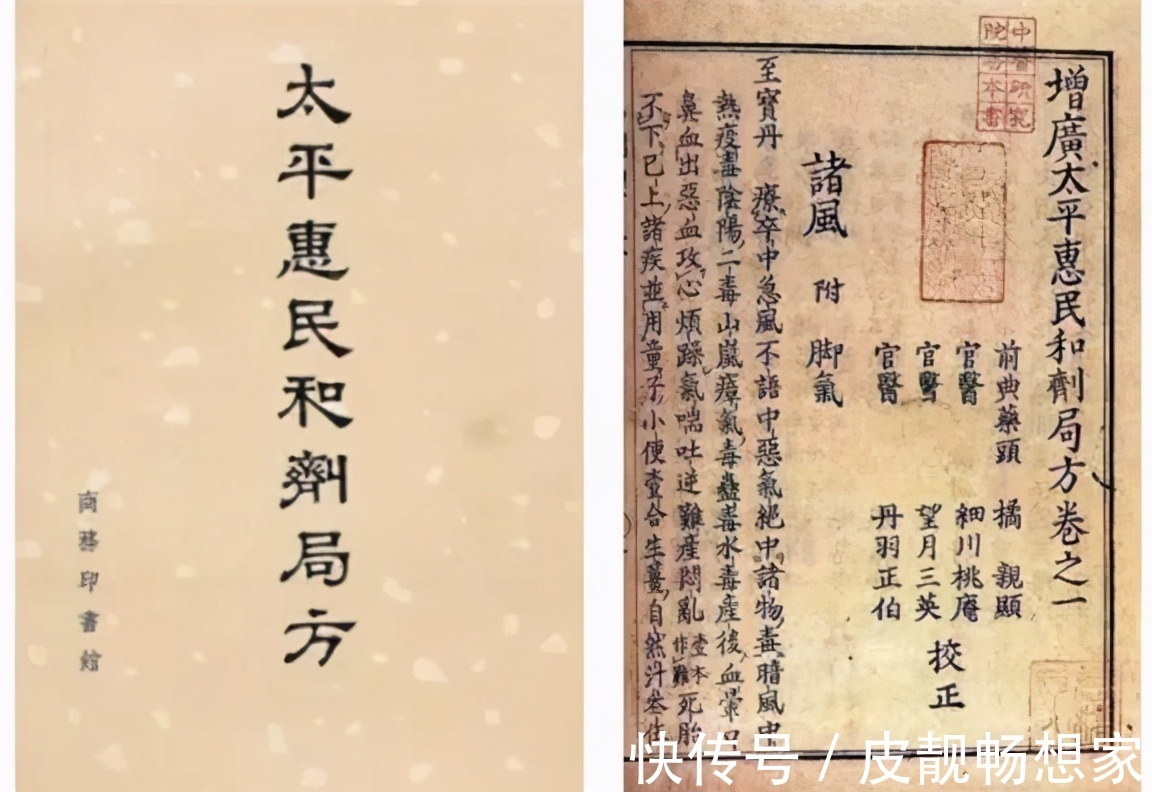 太平惠民和劑局方
商務印書館
增廣太平惠民和劑局方卷之一
前典藥頭 橘 親顯
官醫 細川桃庵
官醫 望月三英
官醫 丹羽正伯
挍正
諸風 附 脚氣
至寶丹 療卒中急風不語中惡氣絕中諸物毒暗風中
熱疫毒陰陽二毒山嵐瘴氣毒蠱毒水毒產後血暈口
鼻血出惡血攻心煩躁氣喘吐逆難產悶亂 壹本作難 死胎
不下已上諸疾並用童子小便壹合生薑自然汁
中醫研究院善本書
快传号 / 皮靓畅想家